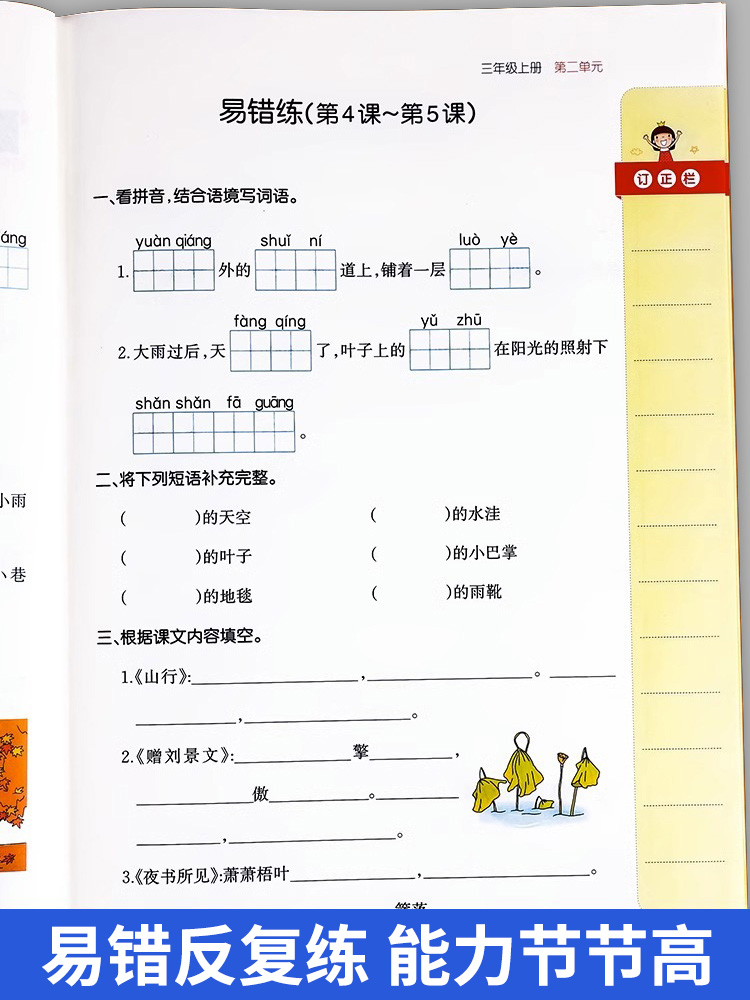 三年级上册 第二单元
易错练(第4课~第5课)
订正栏
一、看拼音,结合语境写词语。
áng
yuàn qiáng shuǐ ní luò yè
1. 外的 道上,铺着一层 。
fàng qíng yǔ zhū
2.大雨过后,天 了,叶子上的 在阳光的照射下
shǎn shǎn fā guāng
。
二、将下列短语补充完整。
小雨
( )的天空 ( )的水洼
( )的叶子 ( )的小巴掌
小巷
( )的地毯 ( )的雨靴
三、根据课文内容填空。
1.《山行》:____,____。____
____,____。
2.《赠刘景文》:____擎____,
____傲____。____
____,____。
3.《夜书所见》:萧萧梧叶____,____。
易错反复练 能力节节高